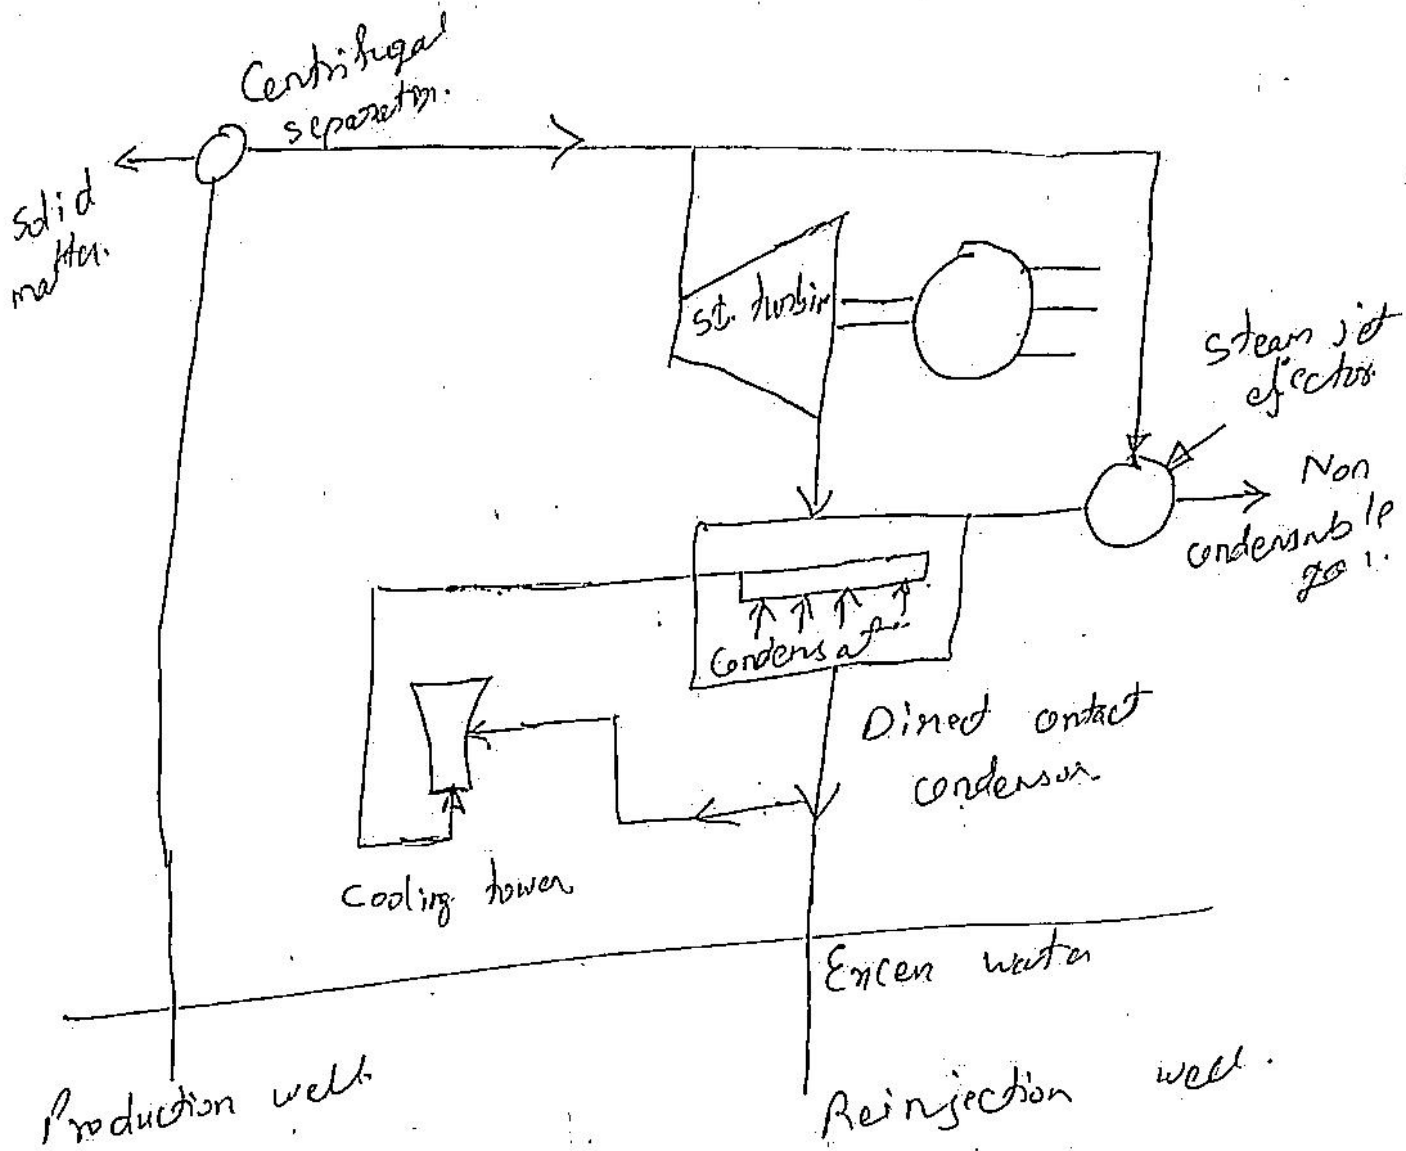 Centrifugal
separation.
Solid
matter.
St. turbin
Steam jet
ejector.
Non
condensable
gas.
Condensate
Direct contact
condensor
Cooling tower
Excen water
Production well
Reinjection well.